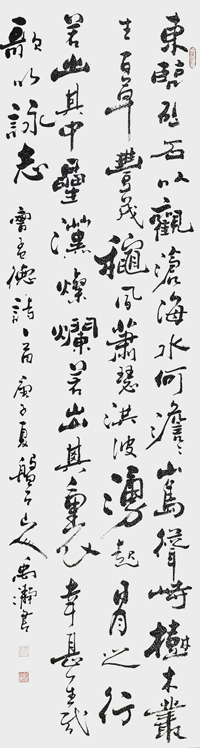 東臨碣石以觀滄海水何澹〻山島聳峙樹木叢
生百草豐茂穐風蕭瑟洪波湧起日月之行
若出其中星漢燦爛若出其裏幸甚至哉
歌以詠志 曹孟德詩一首 庚子夏 山人 書